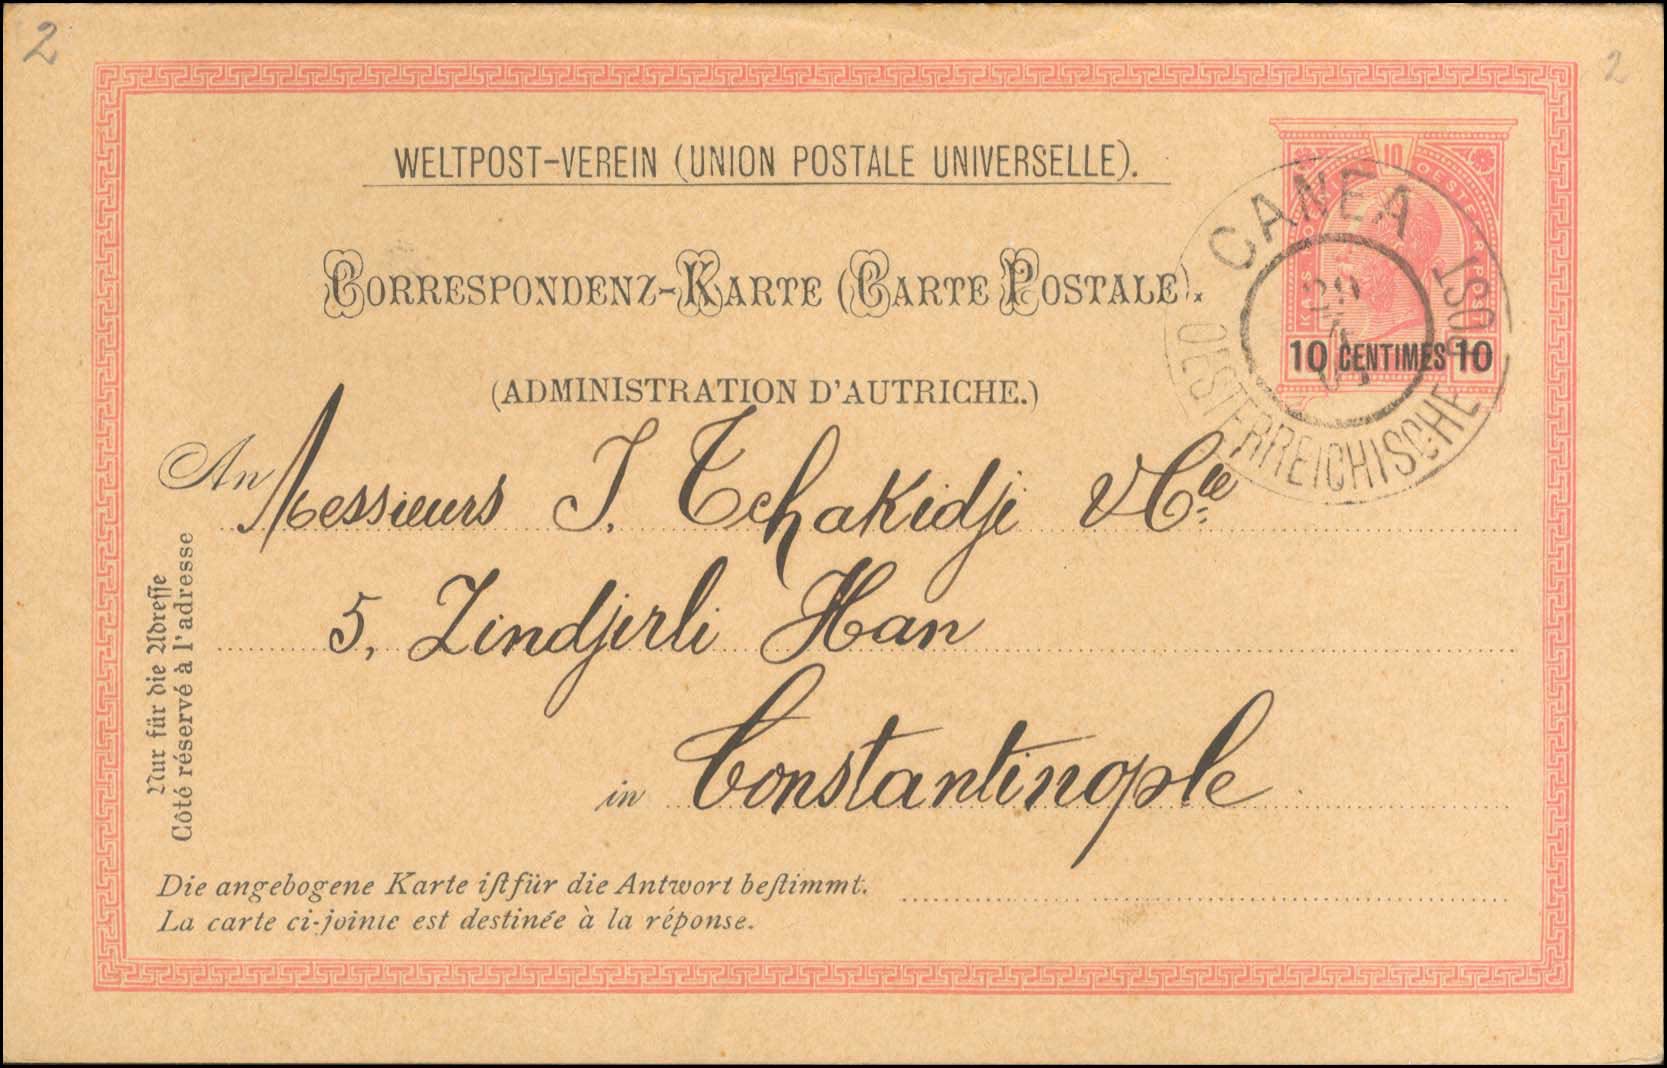 2
2
WELTPOST-VEREIN (UNION POSTALE UNIVERSELLE).
CORRESPONDENZ-KARTE (CARTE POSTALE).
(ADMINISTRATION D'AUTRICHE.)
10
10 CENTIMES 10
CANEA
OESTERREICHISCHE POST
An Messieurs J. Tchakidji & Cie
5, Zindjirli Han
in Constantinople
Nur für die Adresse
Côté réservé à l'adresse
Die angebogene Karte ist für die Antwort bestimmt.
La carte ci-jointe est destinée à la réponse.